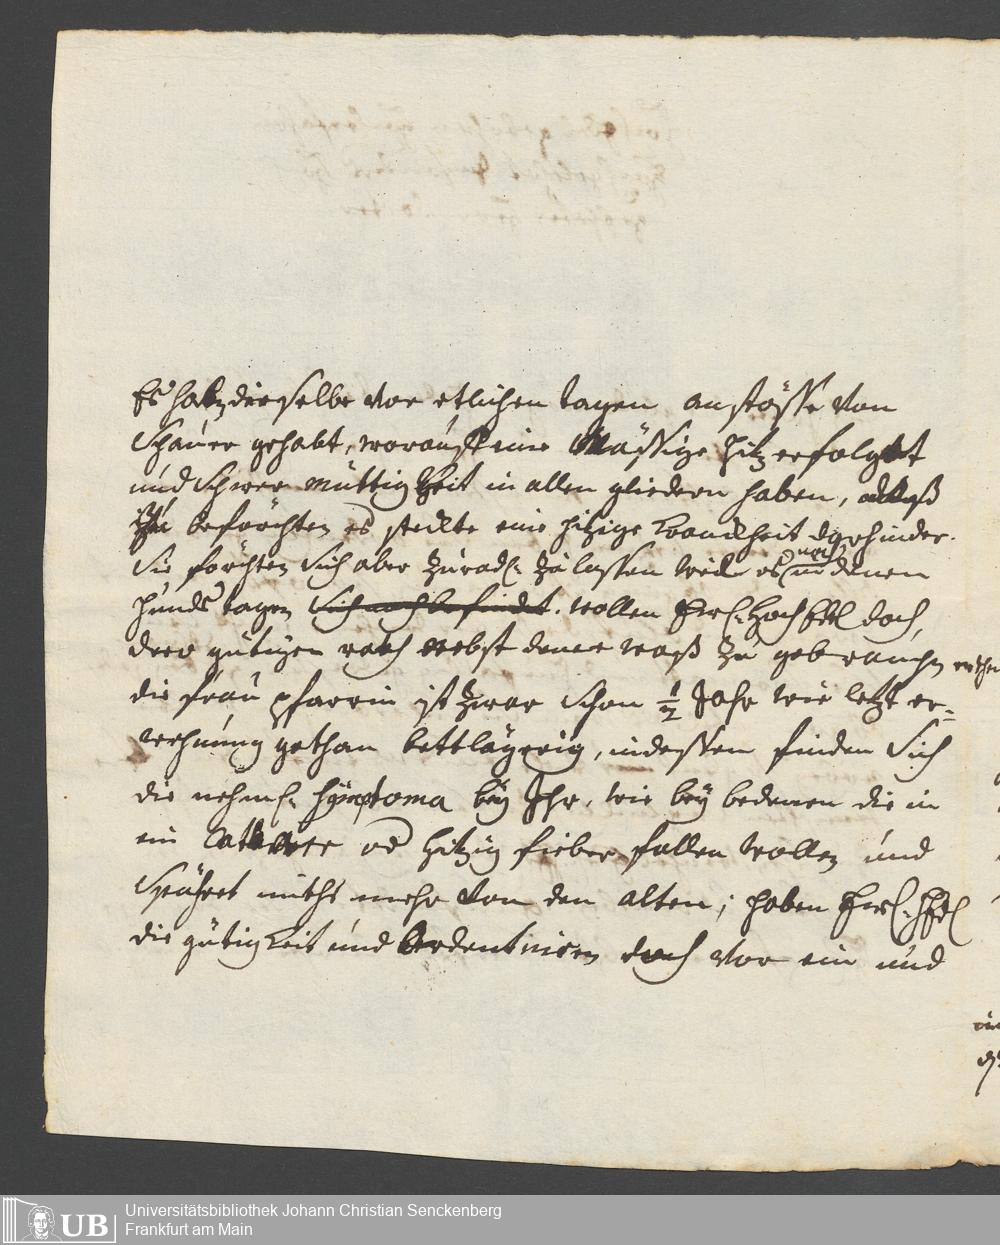 Es haben dieselbe vor etlichen tagen anstösse von
Schauer gehabt, worauff eine Mässige hitz erfolget
und schwer müttigkeit in allen gliedern haben, alß
zu beförchten es steckte eine hitzige kranckheit darhinder.
Sie förchten sich aber zur ader zu lassen weil es noch in denen
hunds tagen sich noch befindet. wollen Ewl. HochEdl doch
dero gütigen rath nebst deme waß zu gebrauchen
die frau pfarrin ist zwar schon ½ Jahr wie letzt er=
wehnung gethan bettlägerig, indessen finden sich
die nehml. symptoma bey Ihr, wie bey denen die in
ein hitzig fieber fallen wollen und
Spühret nichts mehr von den alten; haben Ewl.
die gütigkeit und doch vor ein und
Universitätsbibliothek Johann Christian Senckenberg
UB Frankfurt am Main